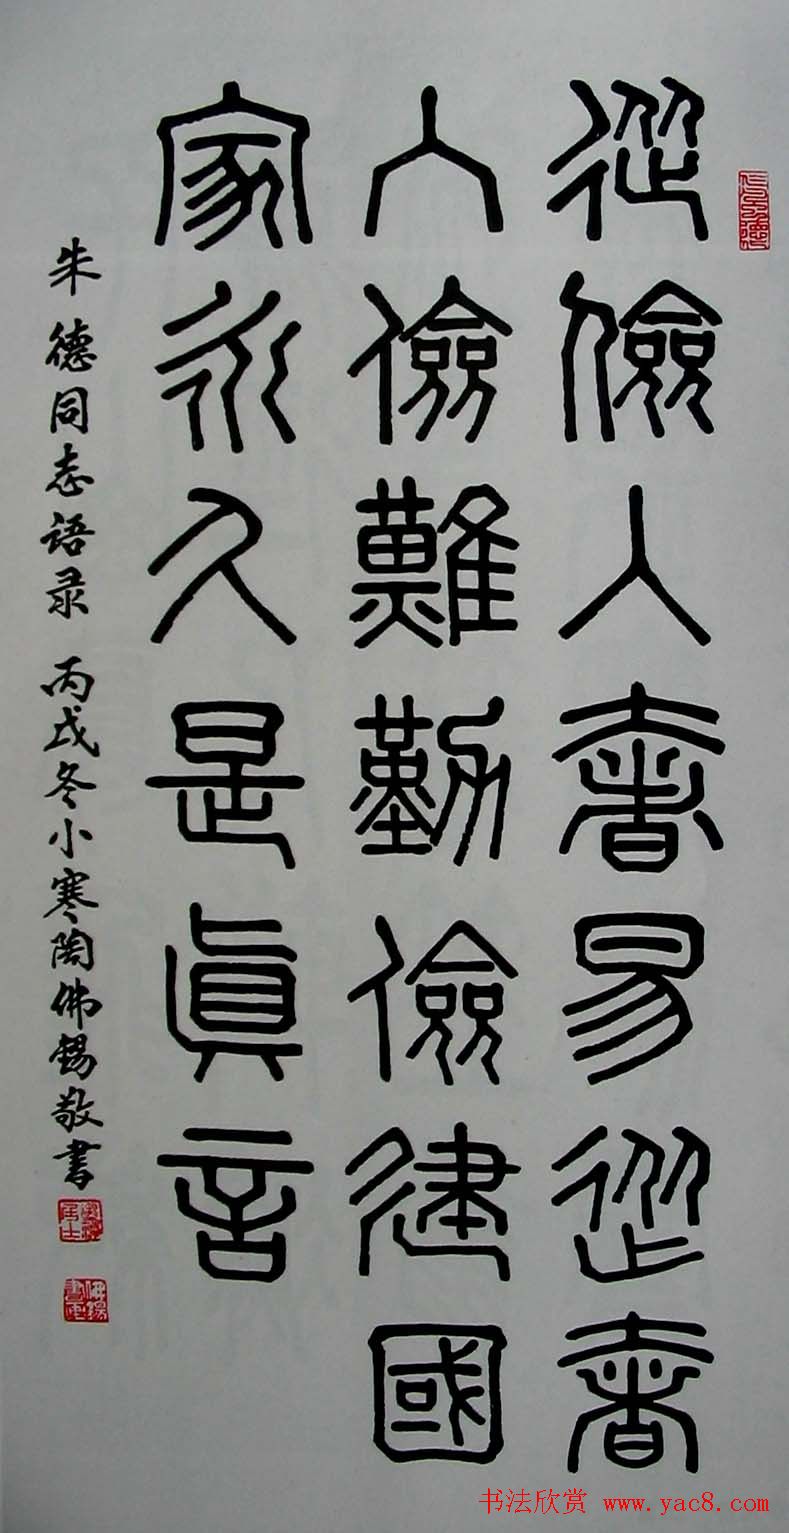 從儉入奢易從奢
入儉難勤儉建國
家永久是眞言
朱德同志语录 丙戌冬小寒陶佛锡敬書
书法欣赏 www.yac8.com